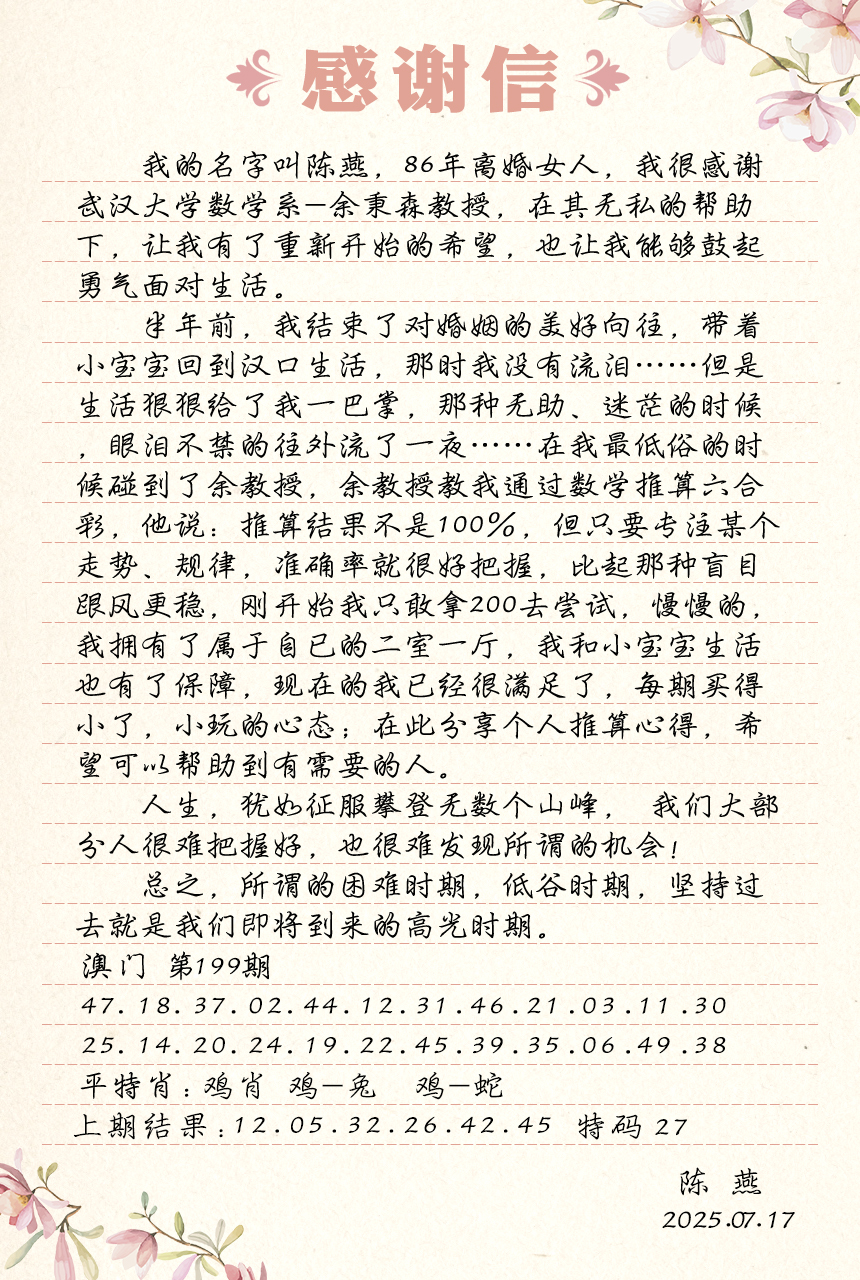 感谢信
我的名字叫陈燕，86年离婚女人，我很感谢
武汉大学数学系—余秉森教授，在其无私的帮助
下，让我有了重新开始的希望，也让我能够鼓起
勇气面对生活。
半年前，我结束了对婚姻的美好向往，带着
小宝宝回到汉口生活，那时我没有流泪……但是
生活狠狠给了我一巴掌，那种无助、迷茫的时候
，眼泪不禁的往外流了一夜……在我最低俗的时
候碰到了余教授，余教授教我通过数学推算六合
彩，他说：推算结果不是100%，但只要专注某个
走势、规律，准确率就很好把握，比起那种盲目
跟风更稳，刚开始我只敢拿200去尝试，慢慢的，
我拥有了属于自已的二室一厅，我和小宝宝生活
也有了保障，现在的我已经很满足了，每期买得
小了，小玩的心态；在此分享个人推算心得，希
望可以帮助到有需要的人。
人生，犹如征服攀登无数个山峰， 我们大部
分人很难把握好，也很难发现所谓的机会！
总之，所谓的困难时期，低谷时期，坚持过
去就是我们即将到来的高光时期。
澳门 第199期
47.18.37.02.44.12.31.46.21.03.11.30
25.14.20.24.19.22.45.39.35.06.49.38
平特肖：鸡肖 鸡—兔 鸡—蛇
上期结果：12.05.32.26.42.45 特码 27
陈 燕
2025.07.17